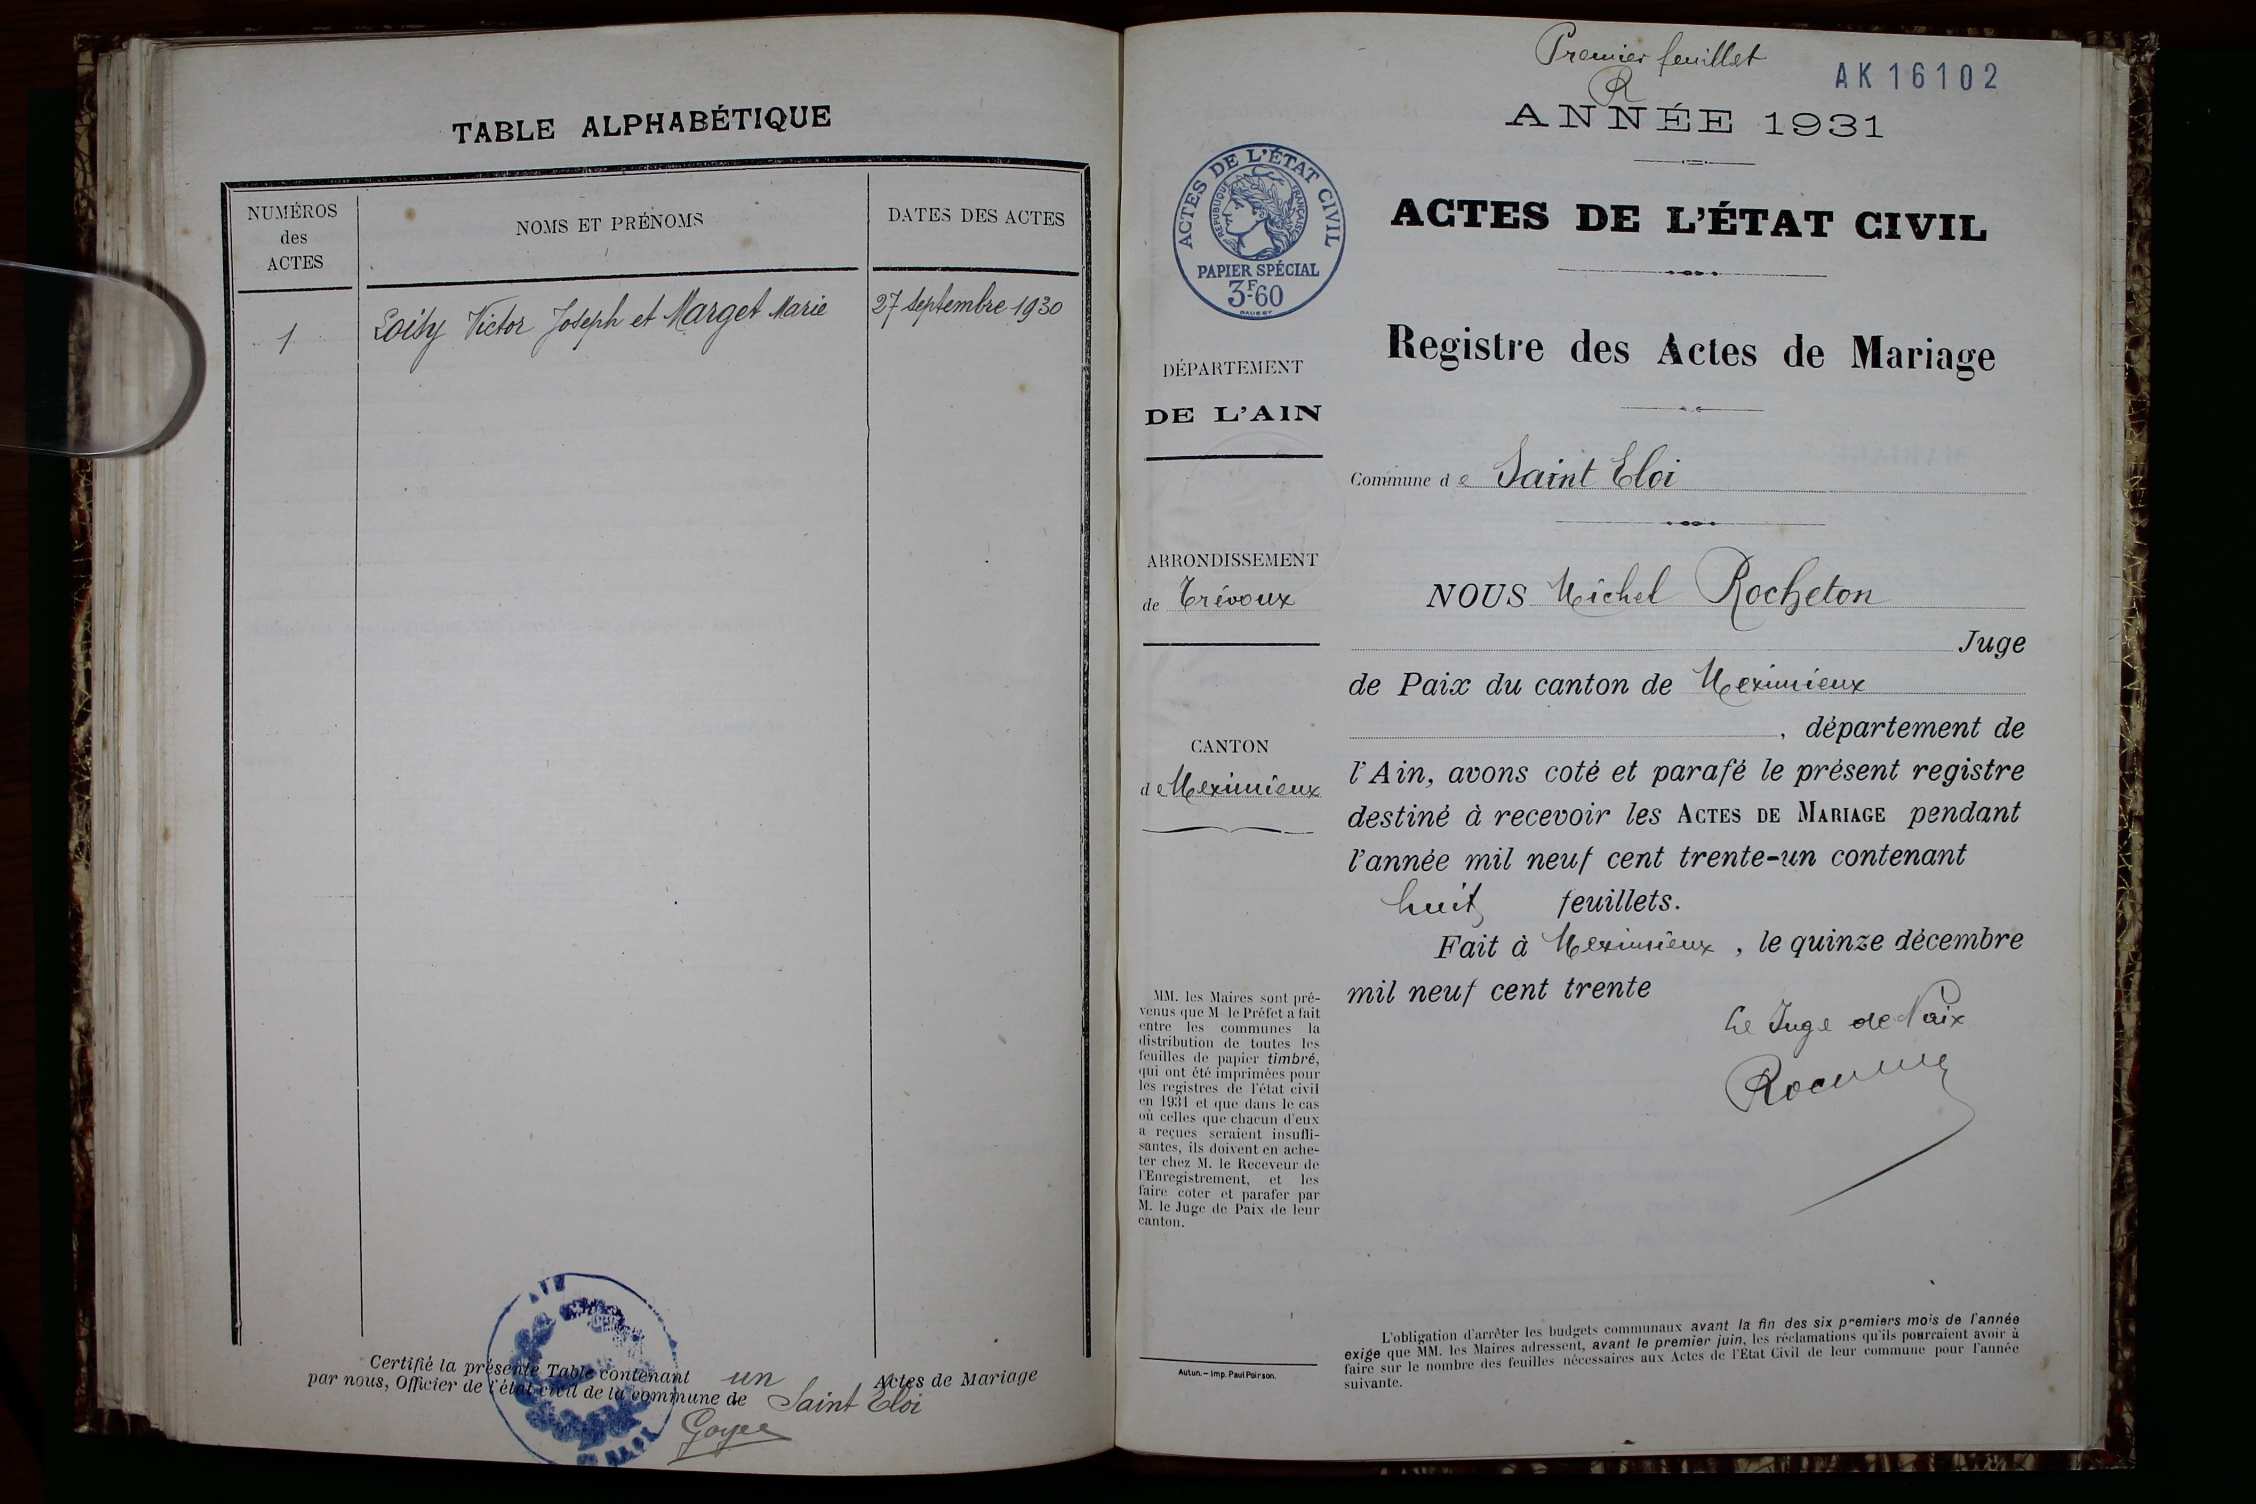 TABLE ALPHABÉTIQUE
NUMÉROS
des
ACTES
NOMS ET PRÉNOMS
DATES DES ACTES
1
Loisy Victor Joseph et Marget Marie
27 Septembre 1930
Certifié la présente Table contenant un Actes de Mariage
par nous, Officier de l'état civil de la commune de Saint Eloi
Premier feuillet
R
AK 16102
ANNÉE 1931
ACTES DE L'ÉTAT CIVIL
RÉPUBLIQUE FRANÇAISE
PAPIER SPÉCIAL
3F60
ACTES DE L'ÉTAT CIVIL
Registre des Actes de Mariage
DÉPARTEMENT
DE L'AIN
Commune de Saint Eloi
ARRONDISSEMENT
de Trévoux
CANTON
de Meximieux
NOUS Michel Rocheton
Juge
de Paix du canton de Meximieux
, département de
l'Ain, avons coté et parafé le présent registre
destiné à recevoir les ACTES DE MARIAGE pendant
l'année mil neuf cent trente-un contenant
huit feuillets.
Fait à Meximieux, le quinze décembre
mil neuf cent trente
Le Juge de Paix
MM. les Maires sont pré-
venus que M le Préfet a fait
entre les communes la
distribution de toutes les
feuilles de papier timbré,
qui ont été imprimées pour
les registres de l'état civil
en 1931 et que dans le cas
où celles que chacun d'eux
a reçues seraient insuffi-
santes, ils doivent en ache-
ter chez M. le Receveur de
l'Enregistrement, et les
faire coter et parafer par
M. le Juge de Paix de leur
canton.
Autun. – Imp. Paul Poirson.
L'obligation d'arrêter les budgets communaux avant la fin des six premiers mois de l'année
exige que MM. les Maires adressent, avant le premier juin, les réclamations qu'ils pourraient avoir à
faire sur le nombre des feuilles nécessaires aux Actes de l'Etat Civil de leur commune pour l'année
suivante.